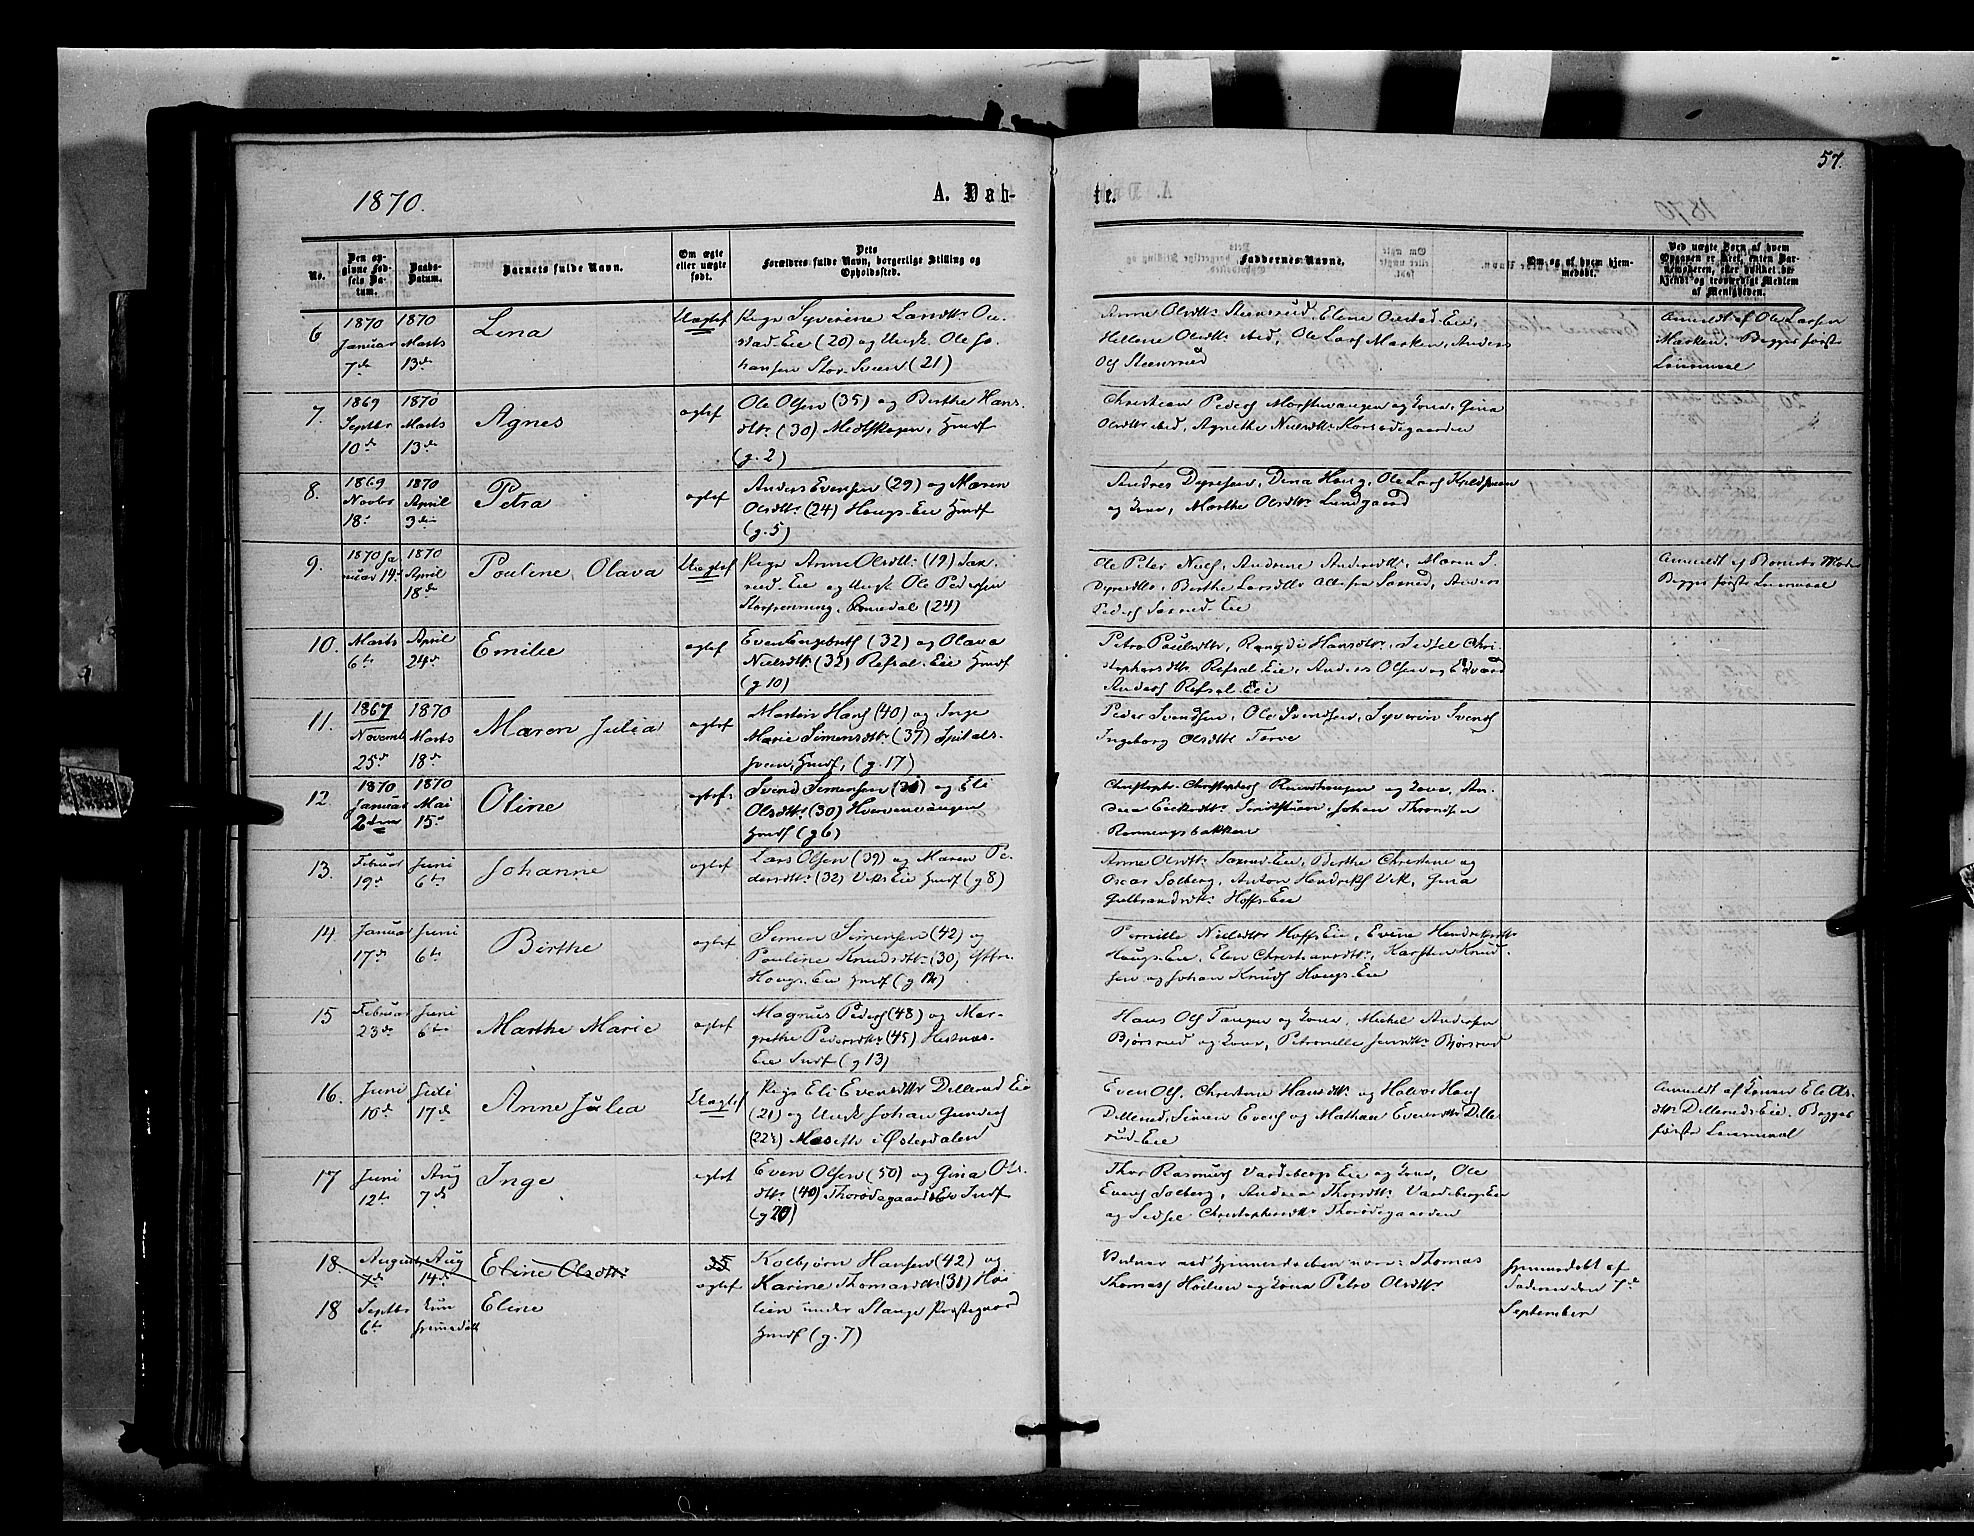 57.
1870.
A. Døb-
te.
No.
Den op-
givne Fød-
sels Da-
tum.
Daabs-
Datum.
Barnets fulde Navn.
Om ægte
eller uægte
født.
Dets
Forældres fulde Navn, borgerlige Stilling og
Opholdssted.
Faddernes Navne.
Om og af hvem hjem-
medøbt.
Ved uægte Børn af hvem
Opgaven er skeet, enten Bar-
nemoderen, eller hvilket be-
kjendt og troværdigt Medlem
af Menigheden.
6
1870
Januar
7de
1870
Marts
13de
Lina
Uægtef
Pige Syverine Larsdttr
stad Eie (20) og Ungk. Ole Jo-
hansen Stor-Sveen (21)
Anne Olsdttr Steensrud, Elene
Hellene Olsdttr ibid, Ole Lars Marken, Anders
Ols Steensrud
Anmeldt af Ole Larsen
Marken. Begges første
Leiermaal
7.
1869
Septbr
10de
1870
Marts
13de
Agnes
ægtef
Ole Olsen (35) og Berthe Hans-
dttr (30) Husmf
(g. 2)
Christian Peders og Kone, Gina
Olsdttr ibid, Agnethe Nielsdttr
8.
1869
Novbr
18
1870
April
3die
Petra
ægtef
Anders Evensen (29) og Maren
Olsdttr (24) Hougs-Eie Husmf
(g. 5)
Andres Dyresen, Dina Houg, Ole Lars
og Kone, Marthe Olsdttr Lundgaard
9.
1870 Ja
nuar 14
1870
April
18de
Pouline Olava
Uægtef
Pige Anne Olsdttr (19) Sax
rud-Eie og Ungk Ole Pedersen
Romedal (24)
Ole Peter Niels, Andrine Andersdttr, Maren S.
Dyresdttr, Berthe Larsdttr alle fra Saxrud, Anders
Peders Saxrud-Eie
Anmeldt af Barnets Moder
Begges første Leiermaal
10.
Marts
6te
April
24de
Emilie
ægtef
Even Engebrets (32) og Olava
Nielsdttr (32) Refsal-Eie Husmf
(g 10)
Petra Paulsdttr, Rangdi Hansdttr, Sidsel Chri-
stophersdttr Refsal Eie, Anders Olsen og Edvard
Anders Refsal-Eie
11.
1867
Novemb
25de
1870
Marts
18de
Maren Julia
ægtef
Martin Hans (40) og Inge
Marie Simensdttr (37) Spitals-
sveen, Husmf, (g. 17)
Peder Svendsen, Ole Svendsen, Syverin Svends
Ingeborg Olsdttr Torve
12
1870
Januar
2den
1870
Mai
15de
Oline
ægtef
Svend Simensen (31) og Eli
Olsdttr (30) Husmf (g 6)
Christoph. Christophers og Kone, An-
dera Johan Throndsen
Rønningsbakken
13.
Februar
19de
Juni
6te
Johanne
ægtef
Lars Olsen (39) og Maren Pe-
dersdttr (32) Viks Eie Husmf (g 8)
Anne Olsdttr Saxrud-Eie, Berthe Christine og
Oscar Solberg, Anton Hendriks Vik, Gina
Gulbrandsdttr Hoffs-Eie
14.
Januar
17de
Juni
6te
Birthe
ægtef
Simen Simensen (42) og
Pouline Knudsdttr (30)
Hougs-Eie Husmf (g 12)
Pernille Nielsdttr Hoffs Eie, Evine Hendriksdttr
Hougs-Eie, Elen Christiansdttr, Karsten Knud-
sen og Johan Knuds Hougs-Eie
15
Februar
23de
Juni
6te
Marthe Marie
ægtef
Magnus Peders (48) og Mar-
grethe Pedersdttr (45) Hestnæs-
Eie Indf (g 13)
Hans Ols Tangen og Kone, Mickel Andersen
Bjørsrud og Kone, Petronelle Jensdttr Bjørsrud
16.
Juni
10de
Juli
17de
Anne Julia
Uægtef
Pige Eli Evensdttr Dillerud Eie
(21) og Ungk Johan Gunders
(22½) i Østerdalen
Even Ols, Christine Hansdttr og Halvor Hans
Dillerud, Simen Evens og Mathea Evensdttr Dille-
rud-Eie
Anmeldt af Konen Eli Ols-
dttr Dilleruds Eie. Begges
første Leiermaal
17
Juni
12te
Aug
7de
Inge
ægtef
Even Olsen (50) og Gina Ols-
dttr (40) Thorødegaards Eie Indf
(g 20)
Thor Rasmus Vardebergs Eie og Kone, Ole
Evens Solberg, Andrea Thorsdttr Vardebergs Eie
og Sidsel Christophersdttr Thorødegaarden
18.
August
7de
Aug
14de
Eline Olsdttr
ægtef
18
Septbr
6te
Kun
hjemmedøbt
Eline
Kolbjørn Hansen (42) og
Karine Thomasdttr (31) Høi
lien under Stange Præstegaard
Husmf (g. 7)
Vidner ved Hjemmedaaben vare: Thomas
Thomas Høilien og Kone Petra Olsdttr
Hjemmedøbt af
Faderen den 7de
September